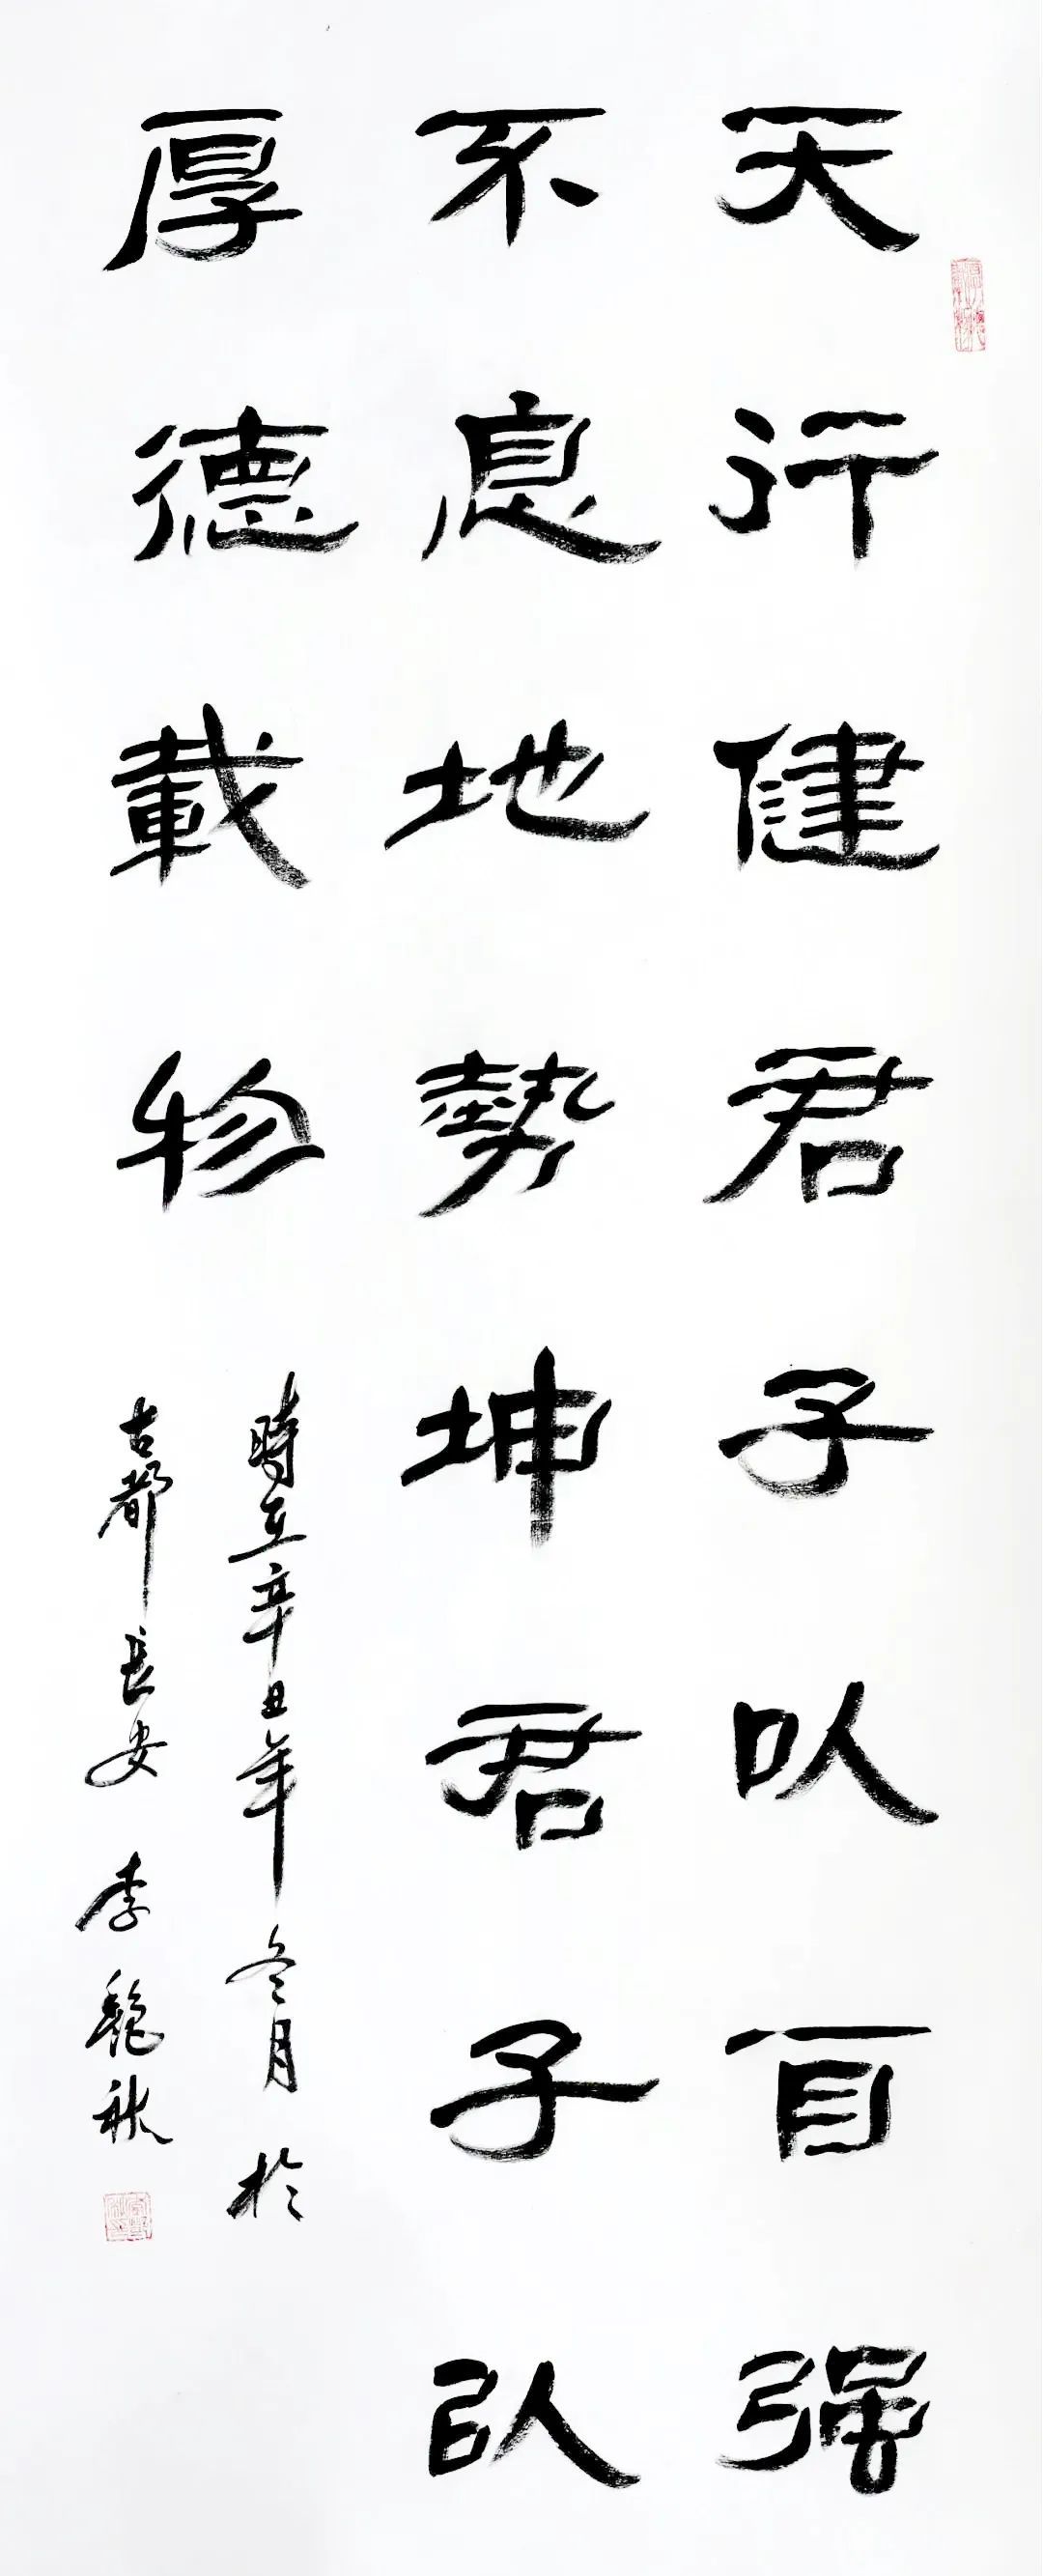 天行健君子以自强
不息地勢坤君子以
厚德載物
時在辛丑年冬月於
古都長安 李艳秋